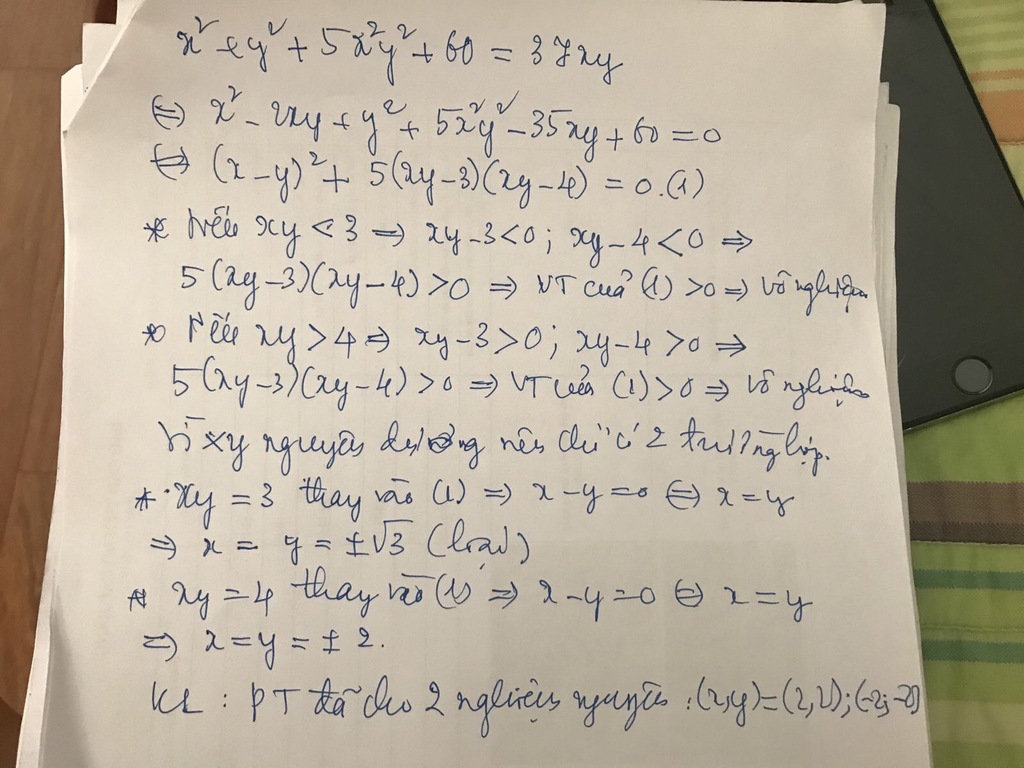 x² + y² + 5x²y² + 60 = 37xy
⇔ x² - 2xy + y² + 5x²y² - 35xy + 60 = 0
⇔ (x-y)² + 5(xy-3)(xy-4) = 0 .(1)
* Nếu xy < 3 ⇒ xy-3<0 ; xy-4<0 ⇒
5(xy-3)(xy-4)>0 ⇒ VT của (1) >0 ⇒ vô nghiệm
* Nếu xy > 4 ⇒ xy-3>0 ; xy-4>0 ⇒
5(xy-3)(xy-4)>0 ⇒ VT của (1)>0 ⇒ vô nghiệm
Vì xy nguyên dương nên chỉ có 2 trường hợp.
* xy = 3 thay vào (1) ⇒ x-y=0 ⇔ x=y
⇒ x = y = ±√3 (loại)
* xy = 4 thay vào (1) ⇒ x-y=0 ⇔ x=y
⇒ x = y = ± 2.
KL : PT đã cho 2 nghiệm nguyên : (x,y)=(2,2);(-2;-2)